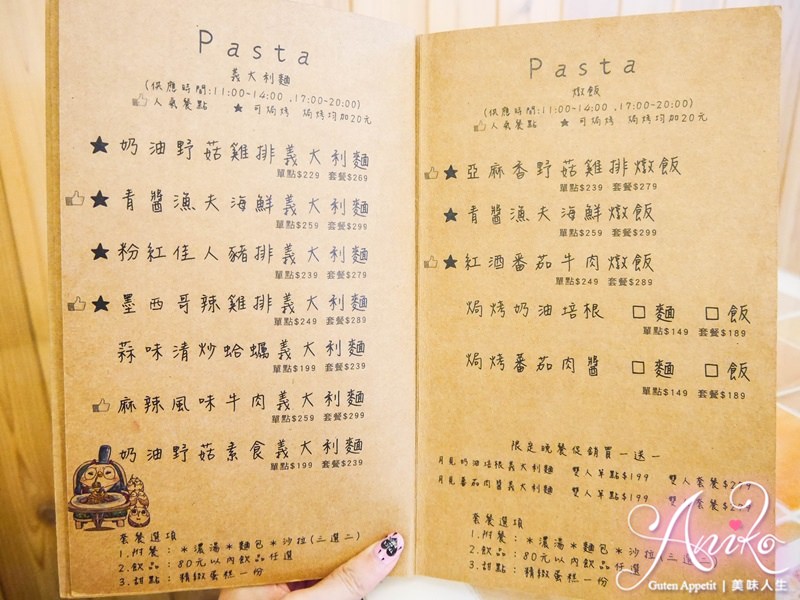 Pasta
義大利麵
(供應時間:11:00~14:00 ,17:00-20:00)
人氣餐點 ★ 可焗烤 焗烤均加20元
★ 奶油野菇雞排義大利麵
單點$229 套餐$269
★ 青醬漁夫海鮮義大利麵
單點$259 套餐$299
★ 粉紅佳人豬排義大利麵
單點$239 套餐$279
★ 墨西哥辣雞排義大利麵
單點$249 套餐$289
蒜味清炒蛤蠣義大利麵
單點$199 套餐$239
麻辣風味牛肉義大利麵
單點$259 套餐$299
奶油野菇素食義大利麵
單點$199 套餐$239
套餐選項
1.附餐:*濃湯*麵包*沙拉(三選二)
2.飲品:80元以內飲品任選
3.甜點:精緻蛋糕一份
Pasta
燉飯
(供應時間:11:00~14:00 ,17:00-20:00)
人氣餐點 ★ 可焗烤 焗烤均加20元
★ 亞麻香野菇雞排燉飯
單點$239 套餐$279
★ 青醬漁夫海鮮燉飯
單點$259 套餐$299
★ 紅酒番茄牛肉燉飯
單點$249 套餐$289
焗烤奶油培根 □ 麵 □ 飯
單點$149 套餐$189
焗烤番茄肉醬 □ 麵 □ 飯
單點$149 套餐$189
限定晚餐促銷買一送一
月見奶油培根義大利麵 雙人單點$199 雙人套餐
月見番茄肉醬義大利麵 雙人單點$199 雙人套餐
套餐選項
1.附餐:*濃湯*麵包*沙拉(三選二)
2.飲品:80元以內飲品任選
3.甜點:精緻蛋糕一份
Aniko
Guten Appetit | 美味人生